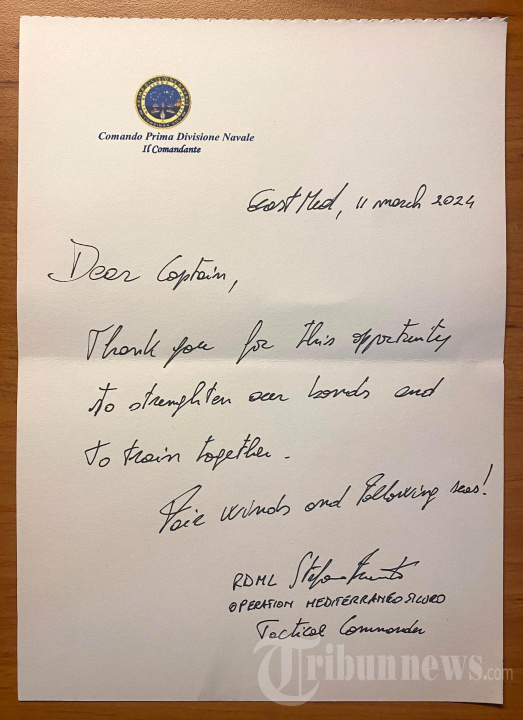 Comando Prima Divisione Navale
Il Comandante
East Med, 11 march 2024
Dear Captain,
Thank you for this opportunity
to strenghten our bonds and
to train together.
Fair winds and following seas!
RDML Stefano
OPERATION MEDITERRANEO SICURO
Tactical Commander
Tribunnews.com